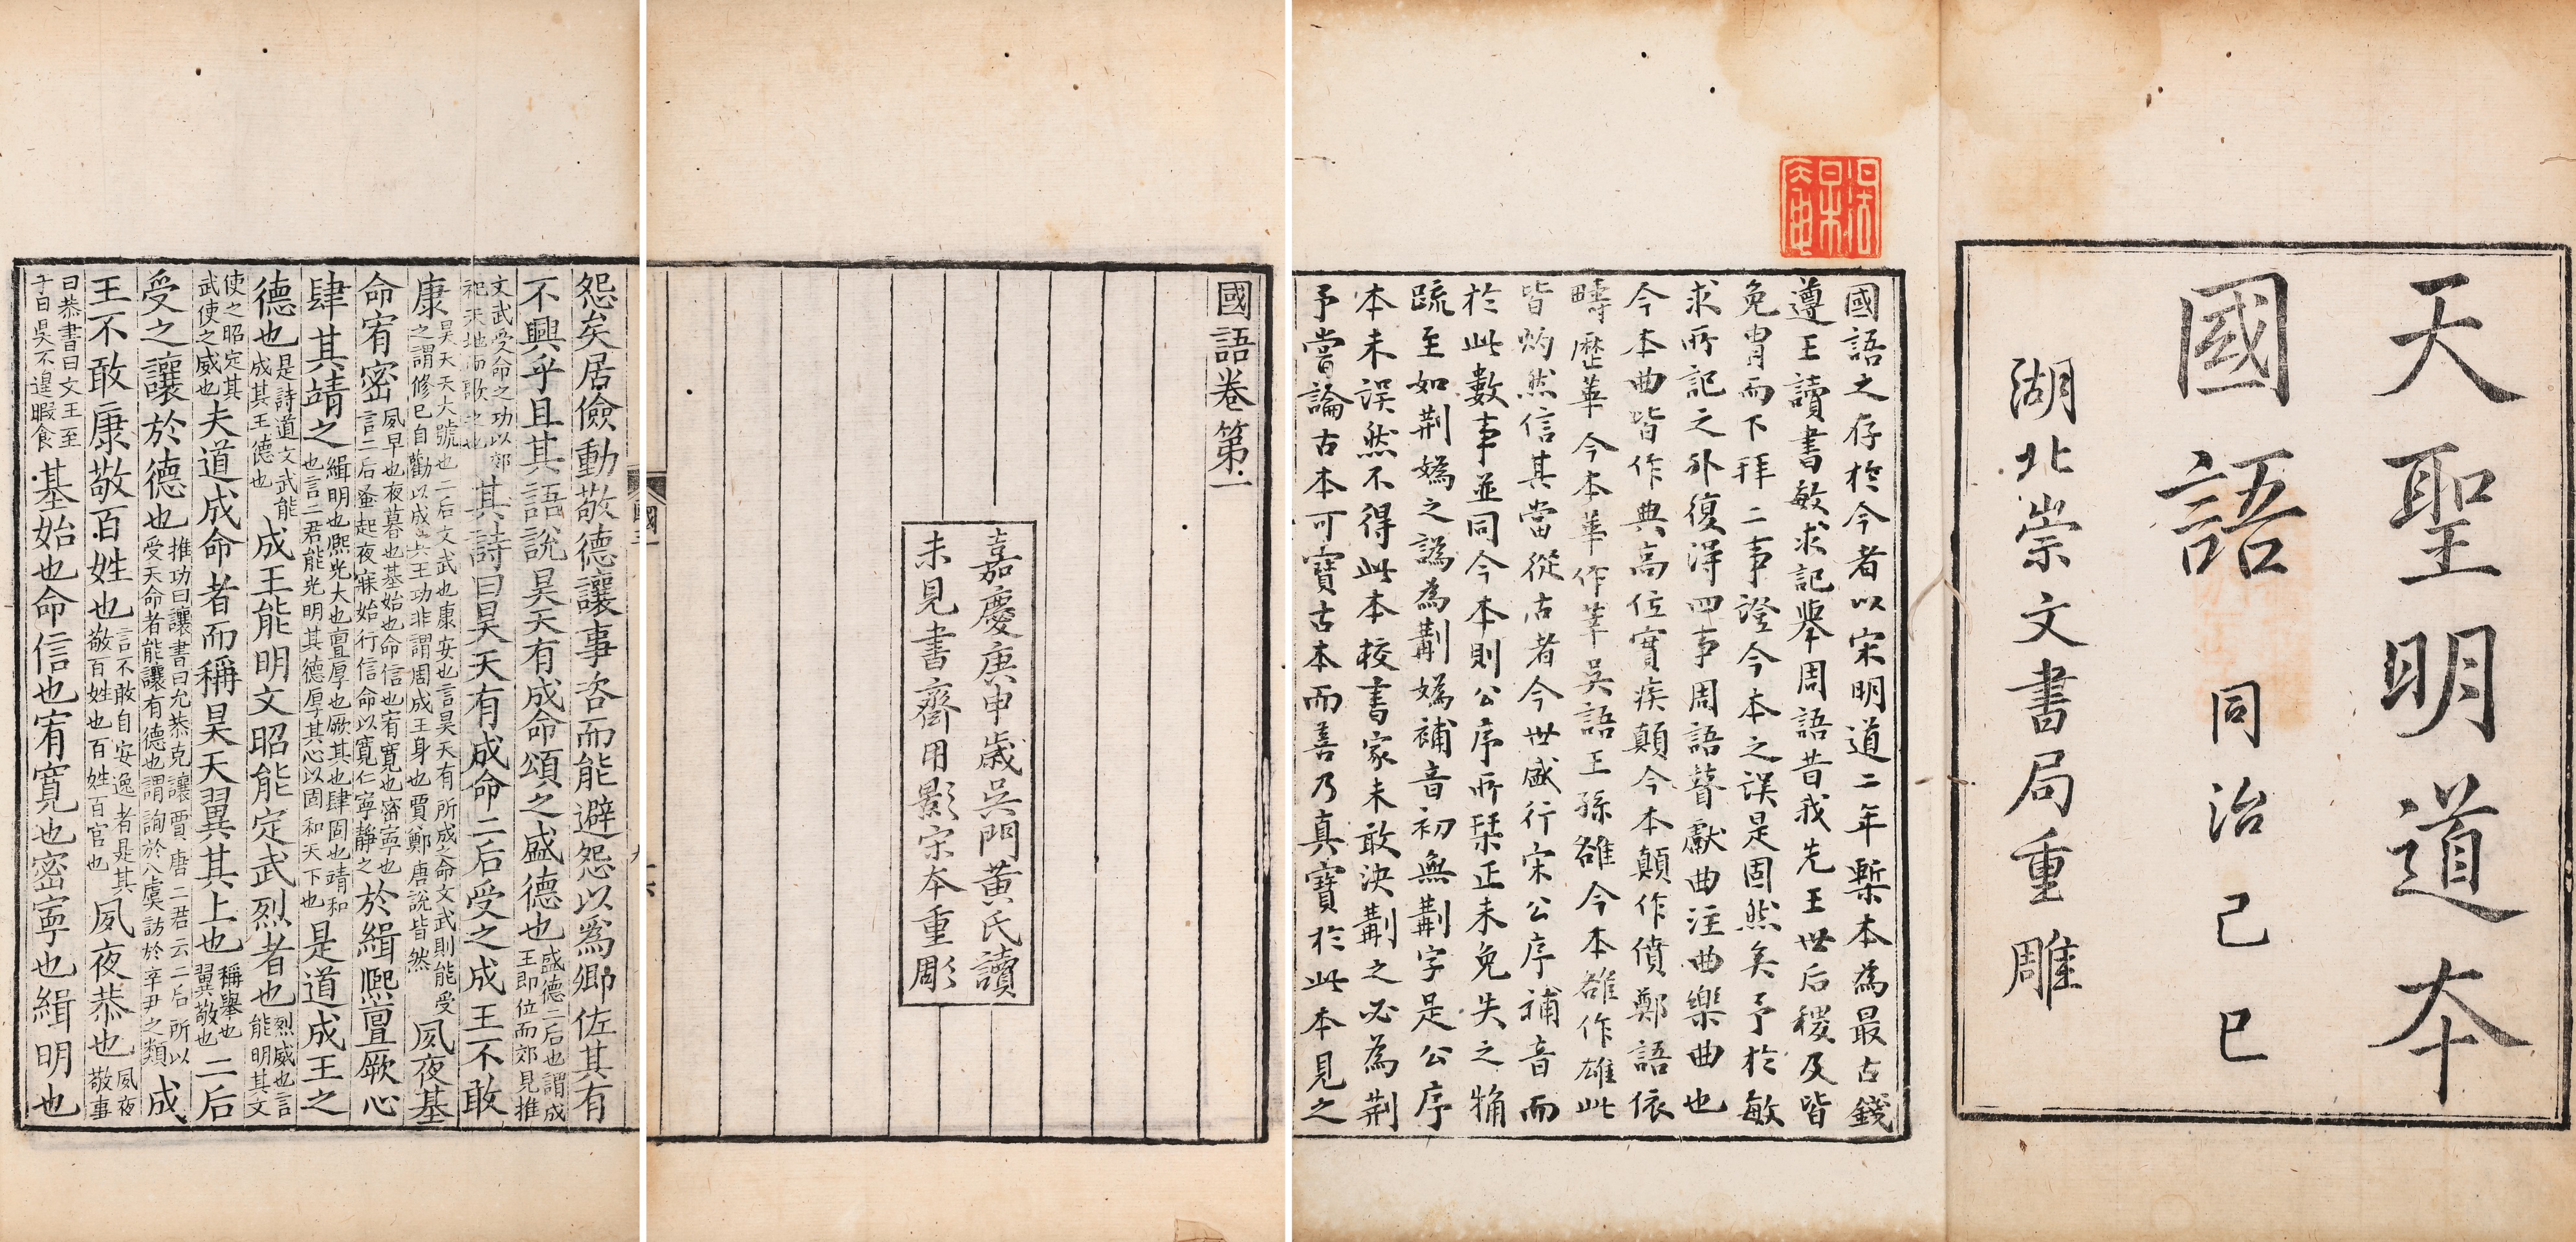 天聖明道本
國語
同治己巳
湖北崇文書局重雕
國語之存於今者以宋明道二年槧本為最古錢
遵王讀書敏求記舉周語昔我先王世后稷及皆
免冑而下拜二事證今本之誤是固然矣予於敏
求所記之外復得四事周語瞽獻曲注曲樂曲也
今本曲皆作典高位實疾顛今本顛作僨鄭語依
疇歷華今本華作莘吳語王孫雒今本雒作雄此
皆灼然信其當從古者今世盛行宋公序補音而
於此數事並同今本則公序所槧正未免失之觕
疏至如荊媯之譌為蒯媯補音初無蒯字是公序
本未誤然不得此本校書家未敢決蒯之必為荊
予嘗論古本可寶古本而善乃真寶於此本見之
國語卷第一
嘉慶庚申歲吳門黃氏讀
未見書齋用影宋本重彫
怨矣居儉動敬德讓事咨而能避怨以爲卿佐其有
不興乎且其語說昊天有成命頌之盛德也盛德二后也謂成王即位而郊見推
文武受命之功以郊祀天地而歌之也其詩曰昊天有成命二后受之成王不敢
康昊天天大號也二后文武也康安也言昊天有所成之命文武則能受之謂修已自勸以成其王功非謂周成王身也賈鄭唐說皆然夙夜基
命宥密夙早也夜暮也基始也命信也宥寬也密寧也言二后蚤起夜寐始行信命以寬仁寧靜之於緝熈亶厥心
肆其靖之緝明也熈光大也亶厚也厥其也肆固也靖和也言二君能光明其德厚其心以固和天下也是道成王之
德也是詩道文武能成其王德也成王能明文昭能定武烈者也烈威也言能明其文
使之昭定其武使之威也夫道成命者而稱昊天翼其上也稱舉也翼敬也二后
受之讓於德也推功曰讓書曰允恭克讓賈唐二君云二后所以受天命者能讓有德也謂詢於八虞訪於辛尹之類成
王不敢康敬百姓也言不敢自安逸者是其敬百姓也百姓百官也夙夜恭也夙夜敬事
曰恭書曰文王至于日昃不遑暇食基始也命信也宥寬也密寧也緝明也